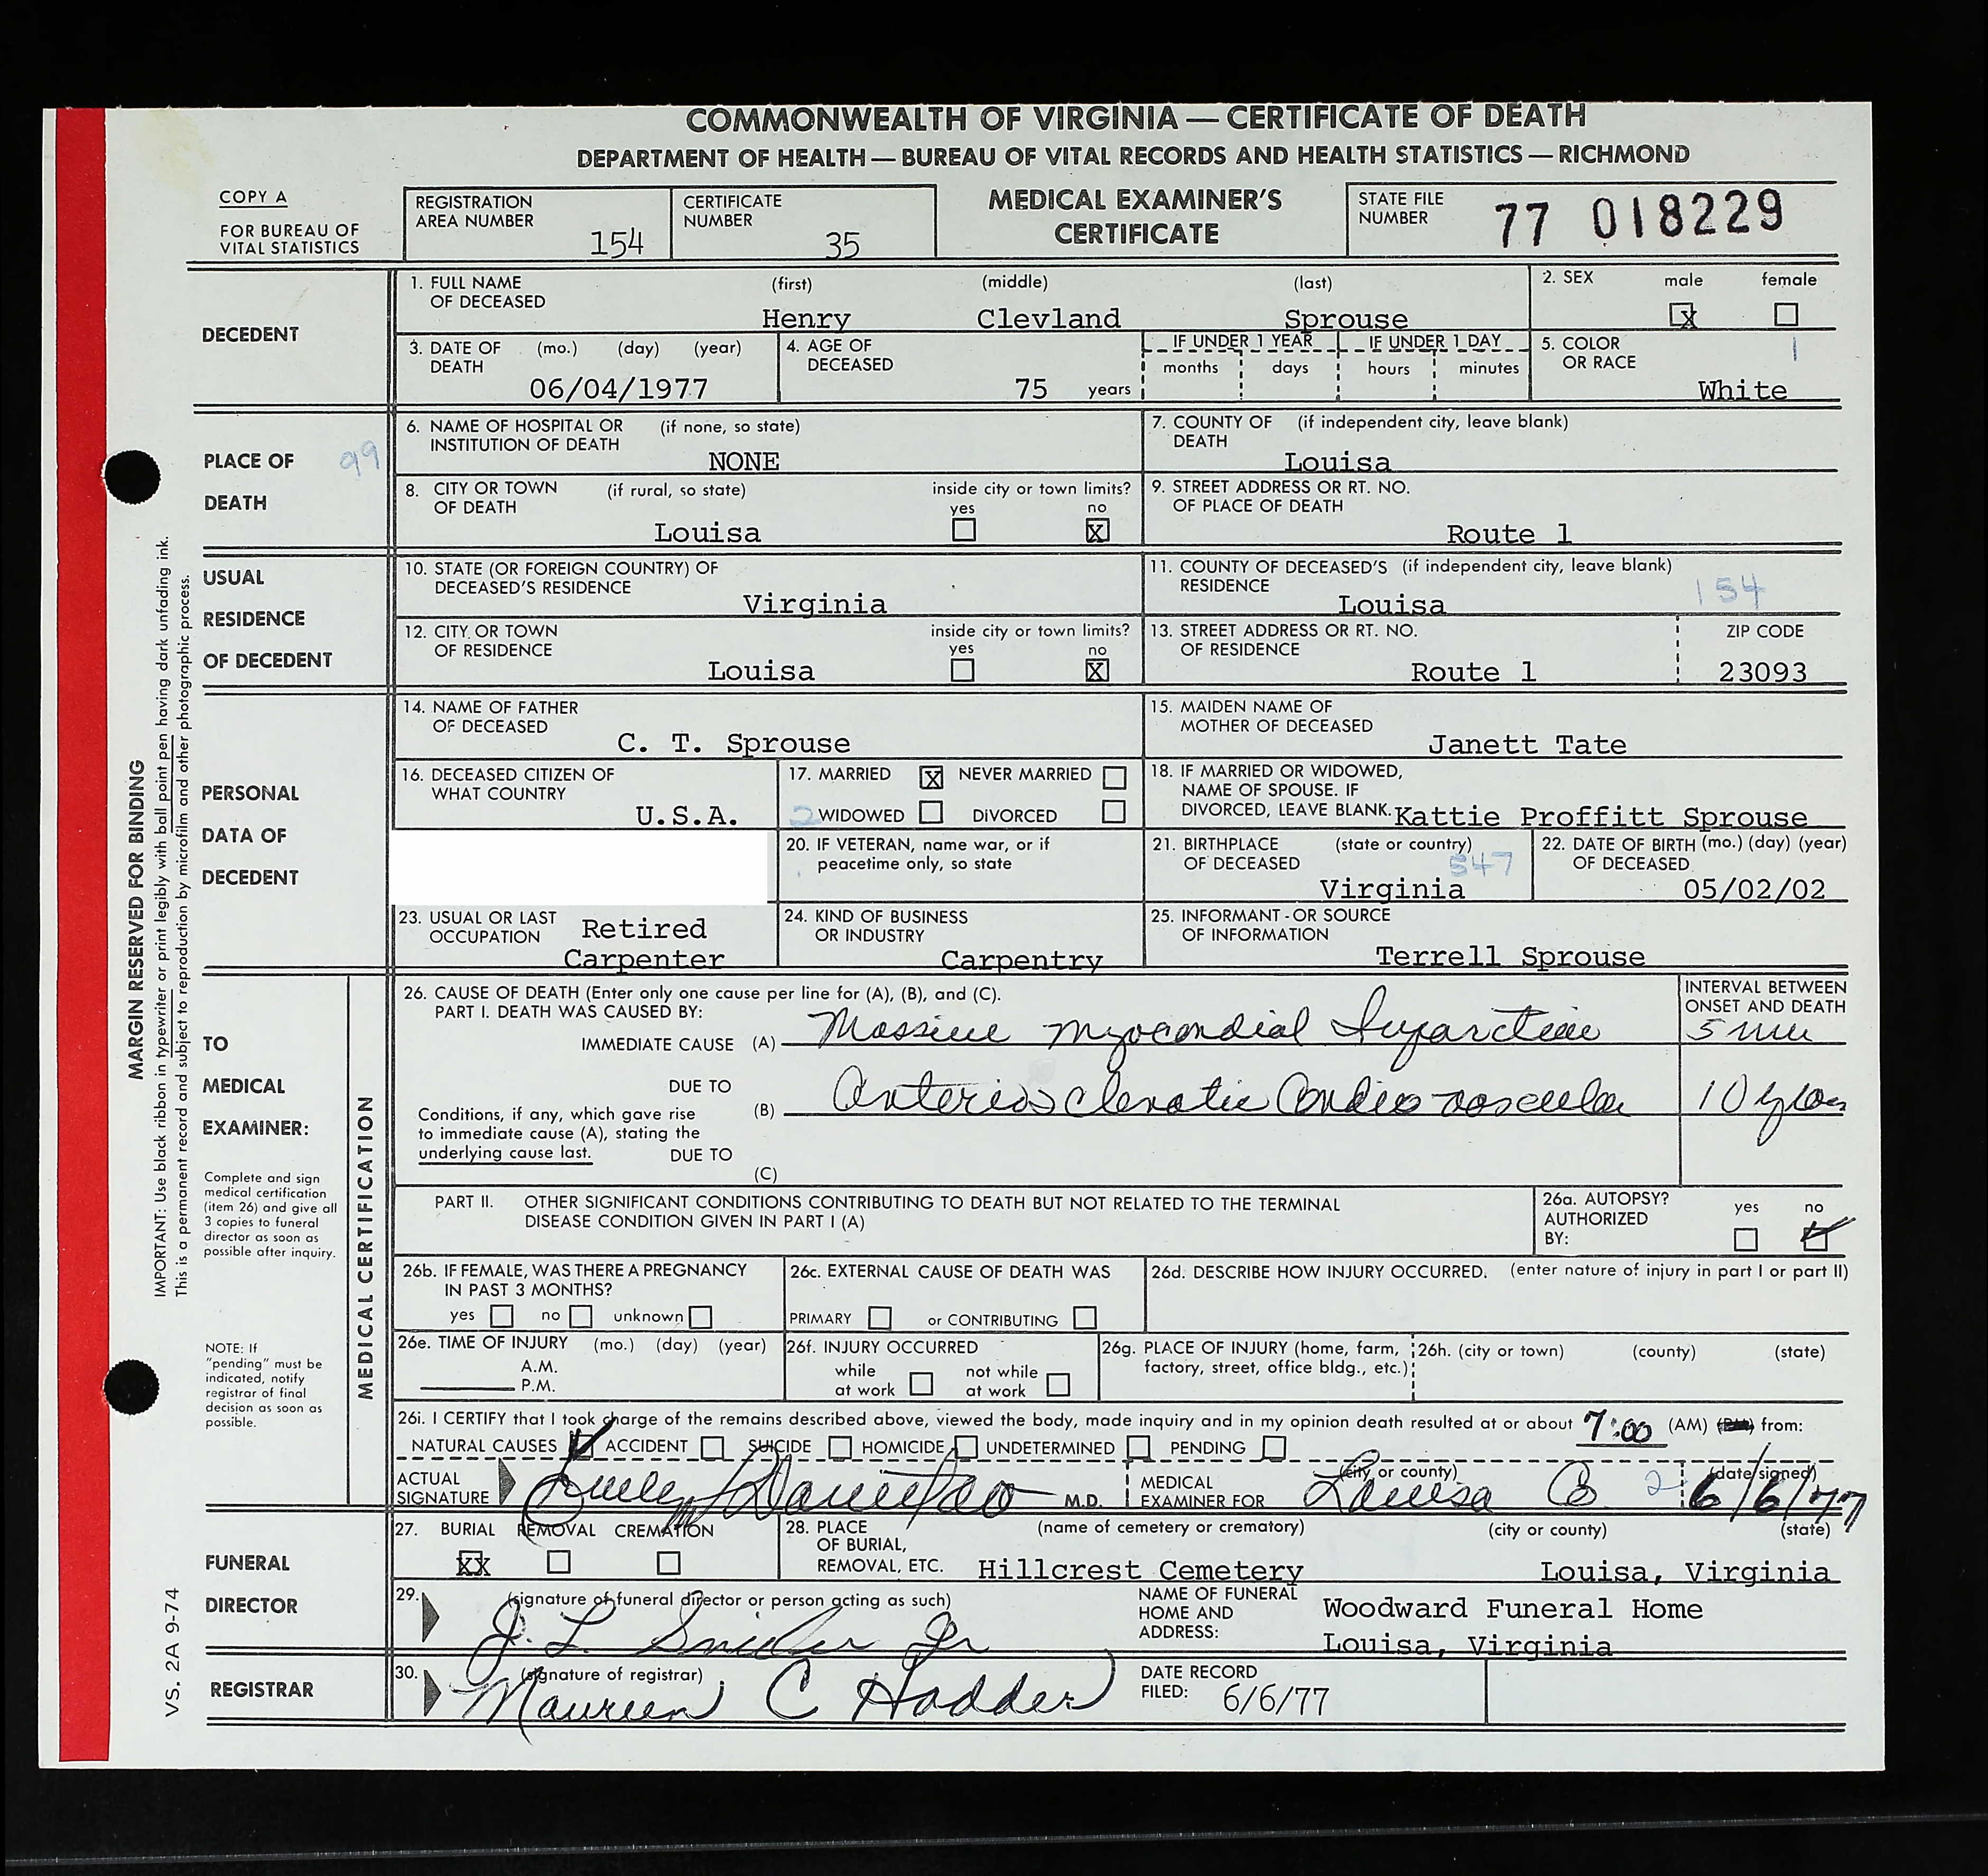 COMMONWEALTH OF VIRGINIA — CERTIFICATE OF DEATH
DEPARTMENT OF HEALTH — BUREAU OF VITAL RECORDS AND HEALTH STATISTICS — RICHMOND
COPY A
FOR BUREAU OF
VITAL STATISTICS
REGISTRATION
AREA NUMBER 154
CERTIFICATE
NUMBER 35
MEDICAL EXAMINER'S
CERTIFICATE
STATE FILE
NUMBER 77 018229
DECEDENT
1. FULL NAME (first) (middle) (last)
OF DECEASED
Henry Clevland Sprouse
2. SEX male female
X
3. DATE OF (mo.) (day) (year)
DEATH
06/04/1977
4. AGE OF
DECEASED
75 years
IF UNDER 1 YEAR IF UNDER 1 DAY
months days hours minutes
5. COLOR 1
OR RACE
White
PLACE OF 99
DEATH
6. NAME OF HOSPITAL OR (if none, so state)
INSTITUTION OF DEATH
NONE
7. COUNTY OF (if independent city, leave blank)
DEATH
Louisa
8. CITY OR TOWN (if rural, so state) inside city or town limits?
OF DEATH yes no
Louisa X
9. STREET ADDRESS OR RT. NO.
OF PLACE OF DEATH
Route 1
USUAL
RESIDENCE
OF DECEDENT
10. STATE (OR FOREIGN COUNTRY) OF
DECEASED'S RESIDENCE
Virginia
11. COUNTY OF DECEASED'S (if independent city, leave blank)
RESIDENCE 154
Louisa
12. CITY OR TOWN inside city or town limits?
OF RESIDENCE yes no
Louisa X
13. STREET ADDRESS OR RT. NO. ZIP CODE
OF RESIDENCE
Route 1 23093
PERSONAL
DATA OF
DECEDENT
14. NAME OF FATHER
OF DECEASED
C. T. Sprouse
15. MAIDEN NAME OF
MOTHER OF DECEASED
Janett Tate
16. DECEASED CITIZEN OF
WHAT COUNTRY
U.S.A.
17. MARRIED X NEVER MARRIED
2 WIDOWED DIVORCED
18. IF MARRIED OR WIDOWED,
NAME OF SPOUSE. IF
DIVORCED, LEAVE BLANK. Kattie Proffitt Sprouse
20. IF VETERAN, name war, or if
peacetime only, so state
21. BIRTHPLACE (state or country)
OF DECEASED 547
Virginia
22. DATE OF BIRTH (mo.) (day) (year)
OF DECEASED
05/02/02
23. USUAL OR LAST
OCCUPATION Retired
Carpenter
24. KIND OF BUSINESS
OR INDUSTRY
Carpentry
25. INFORMANT - OR SOURCE
OF INFORMATION
Terrell Sprouse
MARGIN RESERVED FOR BINDING
IMPORTANT: Use black ribbon in typewriter or print legibly with ball point pen having dark unfading ink.
This is a permanent record and subject to reproduction by microfilm and other photographic process.
TO
MEDICAL
EXAMINER:
Complete and sign
medical certification
(item 26) and give all
3 copies to funeral
director as soon as
possible after inquiry.
NOTE: If
"pending" must be
indicated, notify
registrar of final
decision as soon as
possible.
MEDICAL CERTIFICATION
26. CAUSE OF DEATH (Enter only one cause per line for (A), (B), and (C).
PART I. DEATH WAS CAUSED BY:
INTERVAL BETWEEN
ONSET AND DEATH
IMMEDIATE CAUSE (A) Massive Myocardial Infarction 5 min
DUE TO
(B) Arteriosclerotic Cardiovascular 10 years
Conditions, if any, which gave rise
to immediate cause (A), stating the
underlying cause last. DUE TO
(C)
PART II. OTHER SIGNIFICANT CONDITIONS CONTRIBUTING TO DEATH BUT NOT RELATED TO THE TERMINAL
DISEASE CONDITION GIVEN IN PART I (A)
26a. AUTOPSY? yes no
AUTHORIZED
BY:
26b. IF FEMALE, WAS THERE A PREGNANCY
IN PAST 3 MONTHS?
yes no unknown
26c. EXTERNAL CAUSE OF DEATH WAS
PRIMARY or CONTRIBUTING
26d. DESCRIBE HOW INJURY OCCURRED. (enter nature of injury in part I or part II)
26e. TIME OF INJURY (mo.) (day) (year)
A.M.
P.M.
26f. INJURY OCCURRED
while not while
at work at work
26g. PLACE OF INJURY (home, farm,
factory, street, office bldg., etc.)
26h. (city or town) (county) (state)
26i. I CERTIFY that I took charge of the remains described above, viewed the body, made inquiry and in my opinion death resulted at or about 7:00 (AM) (PM) from:
NATURAL CAUSES ACCIDENT SUICIDE HOMICIDE UNDETERMINED PENDING
ACTUAL
SIGNATURE M.D.
MEDICAL (city or county) (date signed)
EXAMINER FOR Louisa Co 2 6/6/77
FUNERAL
DIRECTOR
27. BURIAL REMOVAL CREMATION
XX
28. PLACE (name of cemetery or crematory) (city or county) (state)
OF BURIAL,
REMOVAL, ETC. Hillcrest Cemetery Louisa, Virginia
29. (signature of funeral director or person acting as such)
J. L. Snider Jr
NAME OF FUNERAL
HOME AND
ADDRESS:
Woodward Funeral Home
Louisa, Virginia
REGISTRAR
30. (signature of registrar)
Maureen C Hodder
DATE RECORD
FILED: 6/6/77
VS. 2A 9-74